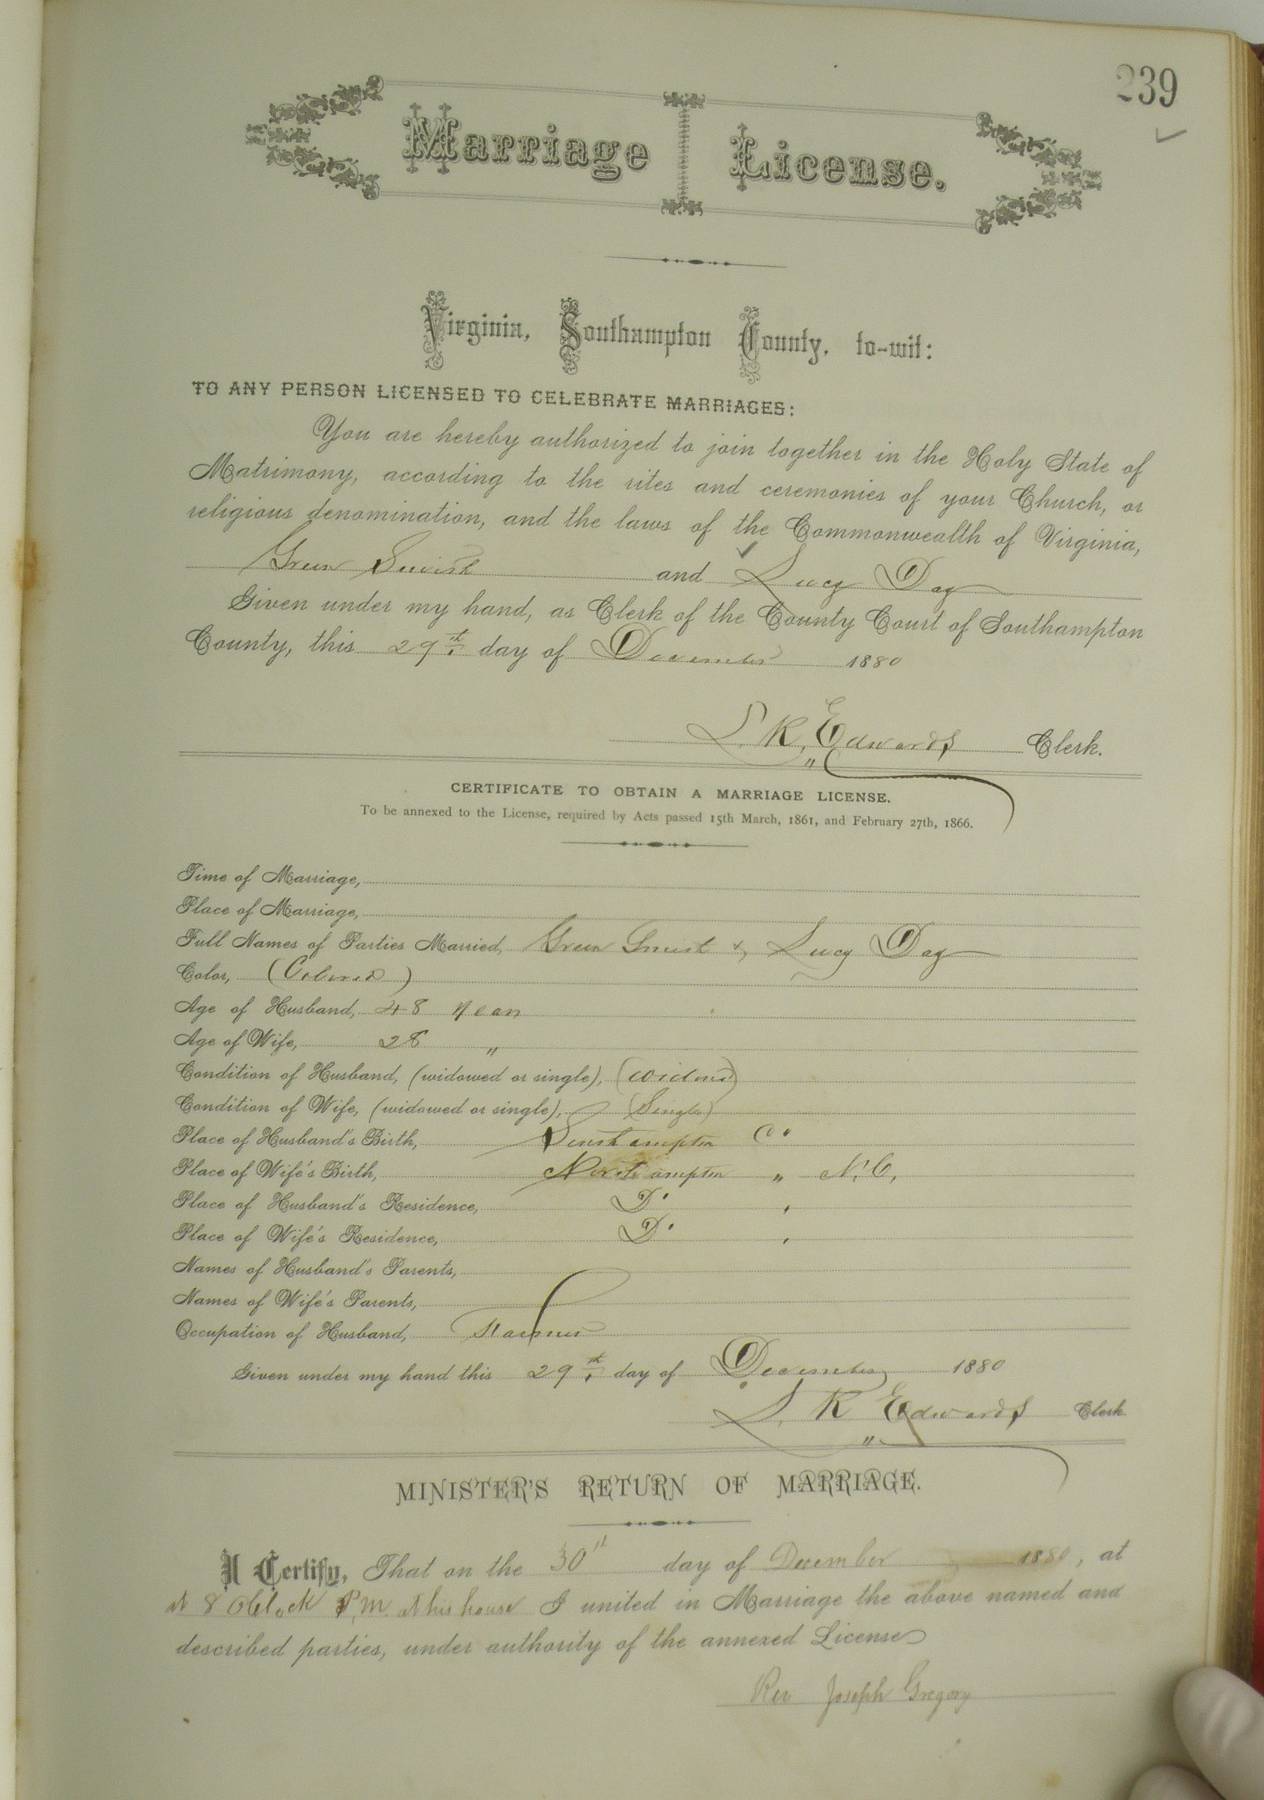 239
Marriage License.
Virginia, Southampton County, to-wit:
TO ANY PERSON LICENSED TO CELEBRATE MARRIAGES:
You are hereby authorized to join together in the Holy State of
Matrimony, according to the rites and ceremonies of your Church, or
religious denomination, and the laws of the Commonwealth of Virginia,
Green and Lucy Day
Given under my hand, as Clerk of the County Court of Southampton
County, this 29th day of December 1880
L. R. Edwards Clerk.
CERTIFICATE TO OBTAIN A MARRIAGE LICENSE.
To be annexed to the License, required by Acts passed 15th March, 1861, and February 27th, 1866.
Time of Marriage,
Place of Marriage,
Full Names of Parties Married, Green & Lucy Day
Color, (Colored)
Age of Husband, 48 years
Age of Wife, 28 "
Condition of Husband, (widowed or single), (Widowed)
Condition of Wife, (widowed or single), (Single)
Place of Husband's Birth, Southampton Co
Place of Wife's Birth, Northampton " N. C.
Place of Husband's Residence, Do
Place of Wife's Residence, Do
Names of Husband's Parents,
Names of Wife's Parents,
Occupation of Husband, Farmer
Given under my hand this 29th day of December 1880
L. R. Edwards Clerk
MINISTER'S RETURN OF MARRIAGE.
I Certify, That on the 30th day of December 1880, at
at 8 OClock P.M. at his house I united in Marriage the above named and
described parties, under authority of the annexed License
Rev Joseph Gregory